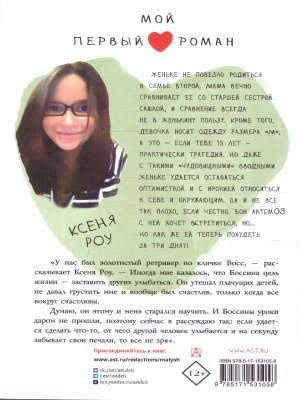 МОЙ
ПЕРВЫЙ РОМАН
ЖЕНЬКЕ НЕ ПОВЕЗЛО РОДИТЬСЯ
В СЕМЬЕ ВТОРОЙ. МАМА ВЕЧНО
СРАВНИВАЕТ ЕЕ СО СТАРШЕЙ СЕСТРОЙ
САШКОЙ, И СРАВНЕНИЕ ВСЕГДА
НЕ В ЖЕНЬКИНУ ПОЛЬЗУ. КРОМЕ ТОГО,
ДЕВОЧКА НОСИТ ОДЕЖДУ РАЗМЕРА «М»,
А ЭТО – ЕСЛИ ТЕБЕ 15 ЛЕТ –
ПРАКТИЧЕСКИ ТРАГЕДИЯ. НО ДАЖЕ
С ТАКИМИ «ЧУДОВИЩНЫМИ» ВВОДНЫМИ
ЖЕНЬКЕ УДАЕТСЯ ОСТАВАТЬСЯ
ОПТИМИСТКОЙ И С ИРОНИЕЙ ОТНОСИТЬСЯ
К СЕБЕ И ОКРУЖАЮЩИМ. ДА И НЕ ВСЕ
ТАК ПЛОХО, ЕСЛИ ЧЕСТНО. ВОН АКТЕМ09
С НЕЙ ХОЧЕТ ВСТРЕТИТЬСЯ, НО...
НО КАК ЖЕ ЕЙ ТЕПЕРЬ ПОХУДЕТЬ
ЗА ТРИ ДНЯ?!
КСЕНЯ
РОУ
«У нас был золотистый ретривер по кличке Босс, — рас-
сказывает Ксеня Роу. — Иногда мне казалось, что Боссина цель
жизни — заставить других улыбаться. Он утешал плачущих детей,
не давал грустить мне и вообще был счастлив, только когда все
вокруг счастливы.
Думаю, он этому и меня старался научить. И Боссины уроки
даром не прошли, поэтому сейчас я рассуждаю так: если удает-
ся сделать что-то, от чего другой человек улыбается и на секунду
забывает свои печали, то все не зря».
Присоединяйтесь к нам!
www.ast.ru/redactions/malysh
vk.com/astdeti
ok.ru/astdeti
zen.yandex.ru/astdeti
12+
www.ast.ru
ISBN 978-5-17-153105-8
9 785171 531058